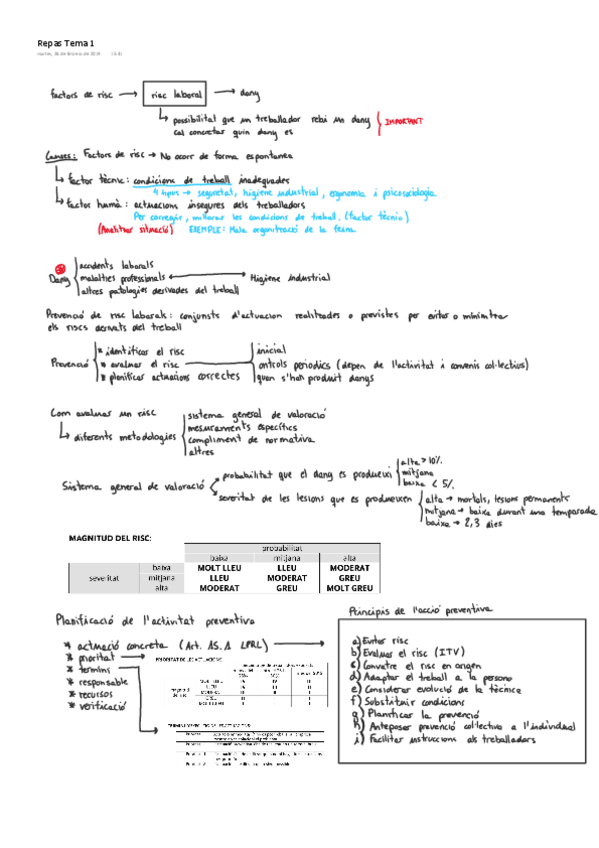 Repas Tema 1
factors de risc → risc laboral → dany
possibilitat que un treballador rebi un dany
cal concretar quin dany es
IMPORTANT
Causes: Factors de risc → No ocorr de forma espontanea
factor tècnic: condicions de treball inadequades
4 tipus → seguretat, higiene industrial, ergonomia i psicosociologia
factor humà: actuacions insegures dels treballadors
Per corregir, millorar les condicions de treball. (factor tècnic)
(Analitzar situació) EXEMPLE: Mala organització de la feina
Dany
accidents laborals
malalties professionals ↔ Higiene industrial
altres patologies derivades del treball
Prevenció de risc laborals: conjunts d'actuacion realitzades o previstes per evitar o minimitzar
els riscs derivats del treball
Prevenció
* identificar el risc
* avaluar el risc
* planificar actuacions correctes
inicial
controls periodics (depen de l'activitat i convenis col·lectius)
quan s'han produit danys
Com avaluar un risc
diferents metodologies
sistema general de valoració
mesuraments específics
compliment de normativa
altres
Sistema general de valoració
probabilitat que el dany es produeixi
alta > 10%
mitjana
baixa < 5%
severitat de les lesions que es produeixen
alta → mortals, lesions permanents
mitjana → baixa durant una temporada
baixa → 2,3 dies
MAGNITUD DEL RISC:
probabilitat
baixa mitjana alta
severitat
baixa MOLT LLEU LLEU MODERAT
mitjana LLEU MODERAT GREU
alta MODERAT GREU MOLT GREU
Planificació de l'activitat preventiva
* actuació concreta (Art. 15.1 LPRL)
* prioritat
* termins
* responsable
* recursos
* verificació
PRIORITAT DE LES ACTUACIONS
Principis de l'acció preventiva
a) Evitar risc
b) Evaluar el risc (ITV)
c) Combatre el risc en origen
d) Adaptar el treball a la persona
e) Considerar evolució de la tècnica
f) Substituir condicions
g) Planificar la prevenció
h) Anteposar prevenció collectiva a l'individual
i) Facilitar instruccions als treballadors